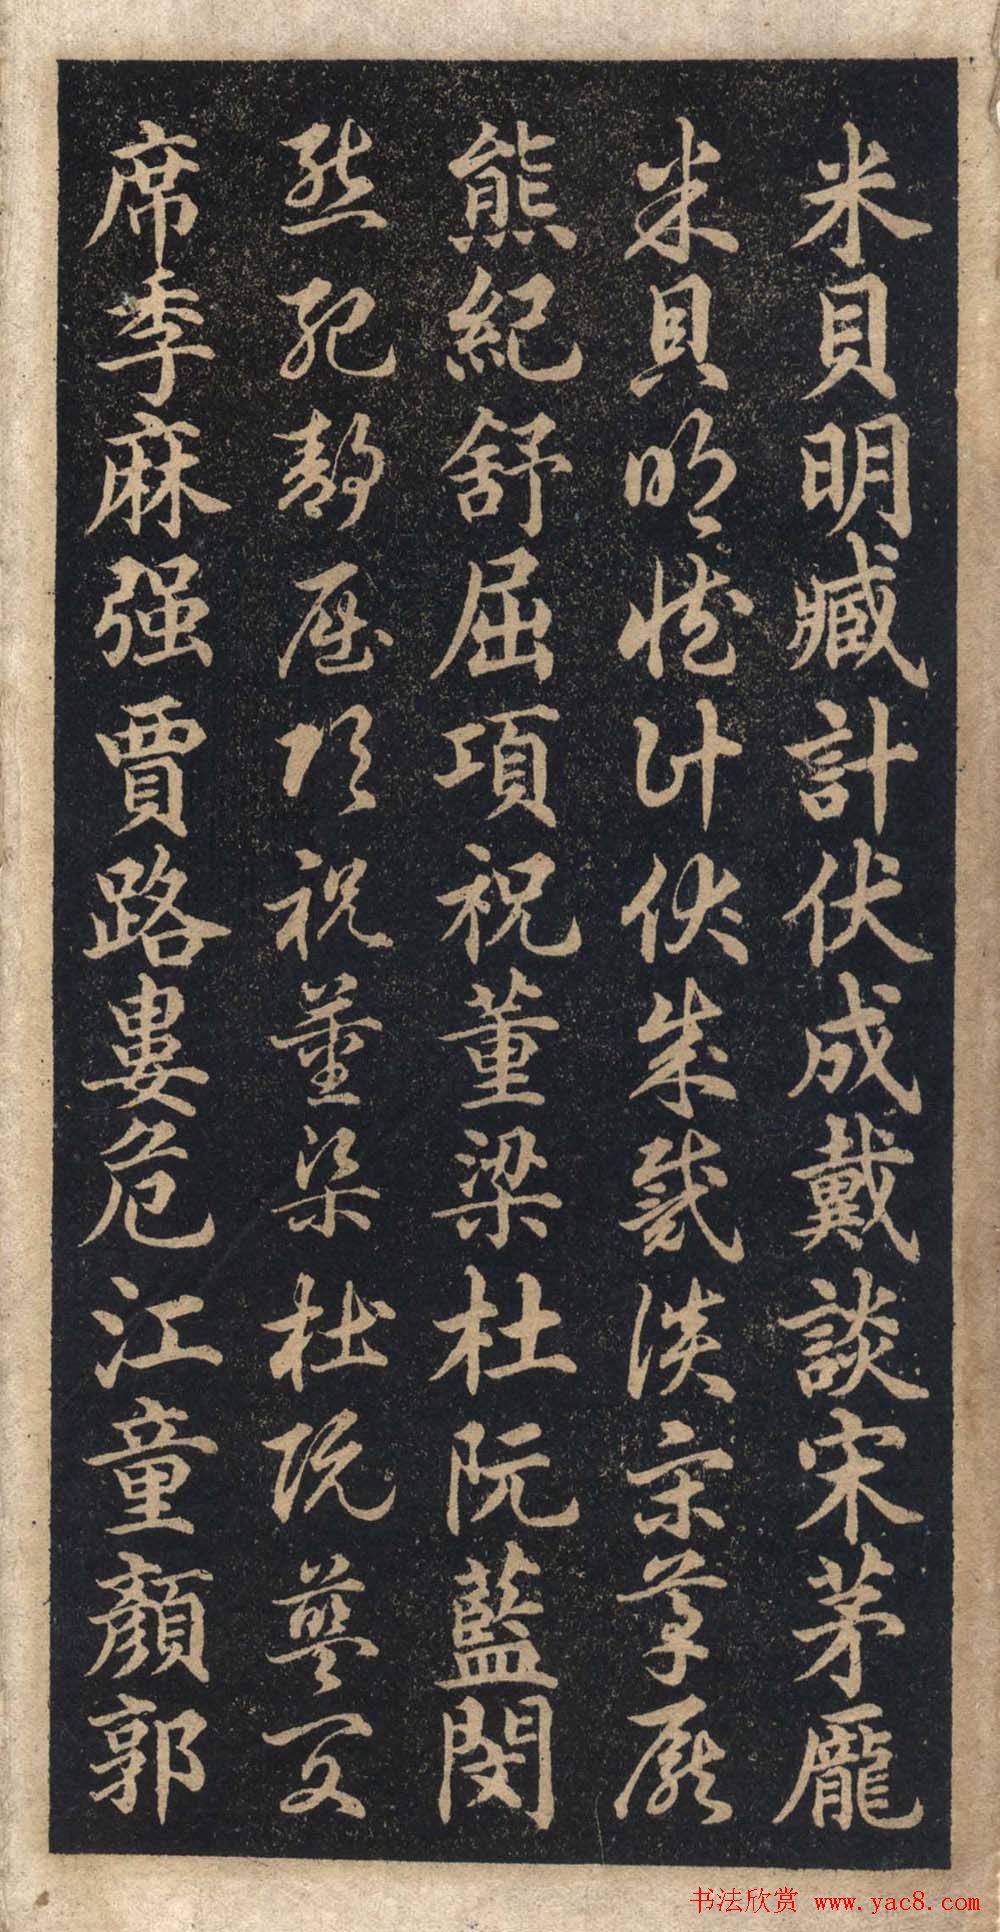 米貝明臧計伏成戴談宋茅龐
米貝明臧計伏成戴談宋茅龐
熊紀舒屈項祝董梁杜阮藍閔
熊紀舒屈項祝董梁杜阮藍閔
席季麻强賈路婁危江童顏郭
书法欣赏 www.yac8.com